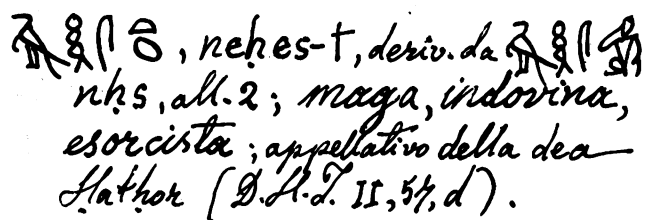 , neḥes-t, deriv. da
nḥs, all. 2; maga, indovina,
esorcista; appellativo della dea
Ḥatḥor (D.H.T. II, 57, d).